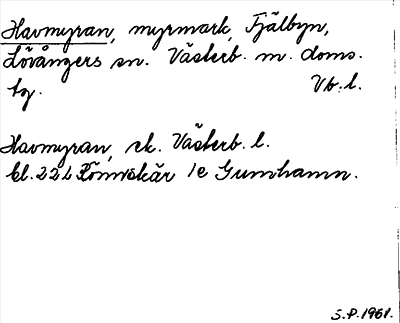 Havmyran, myrmark, Fjälbyn,
Lövångers sn. Västerb. m. doms.
tg. Vb. l.
Havmyran, ek. Västerb. l.
bl. 22 L Rönnskär 1e Gumhamn.
S.P. 1961.